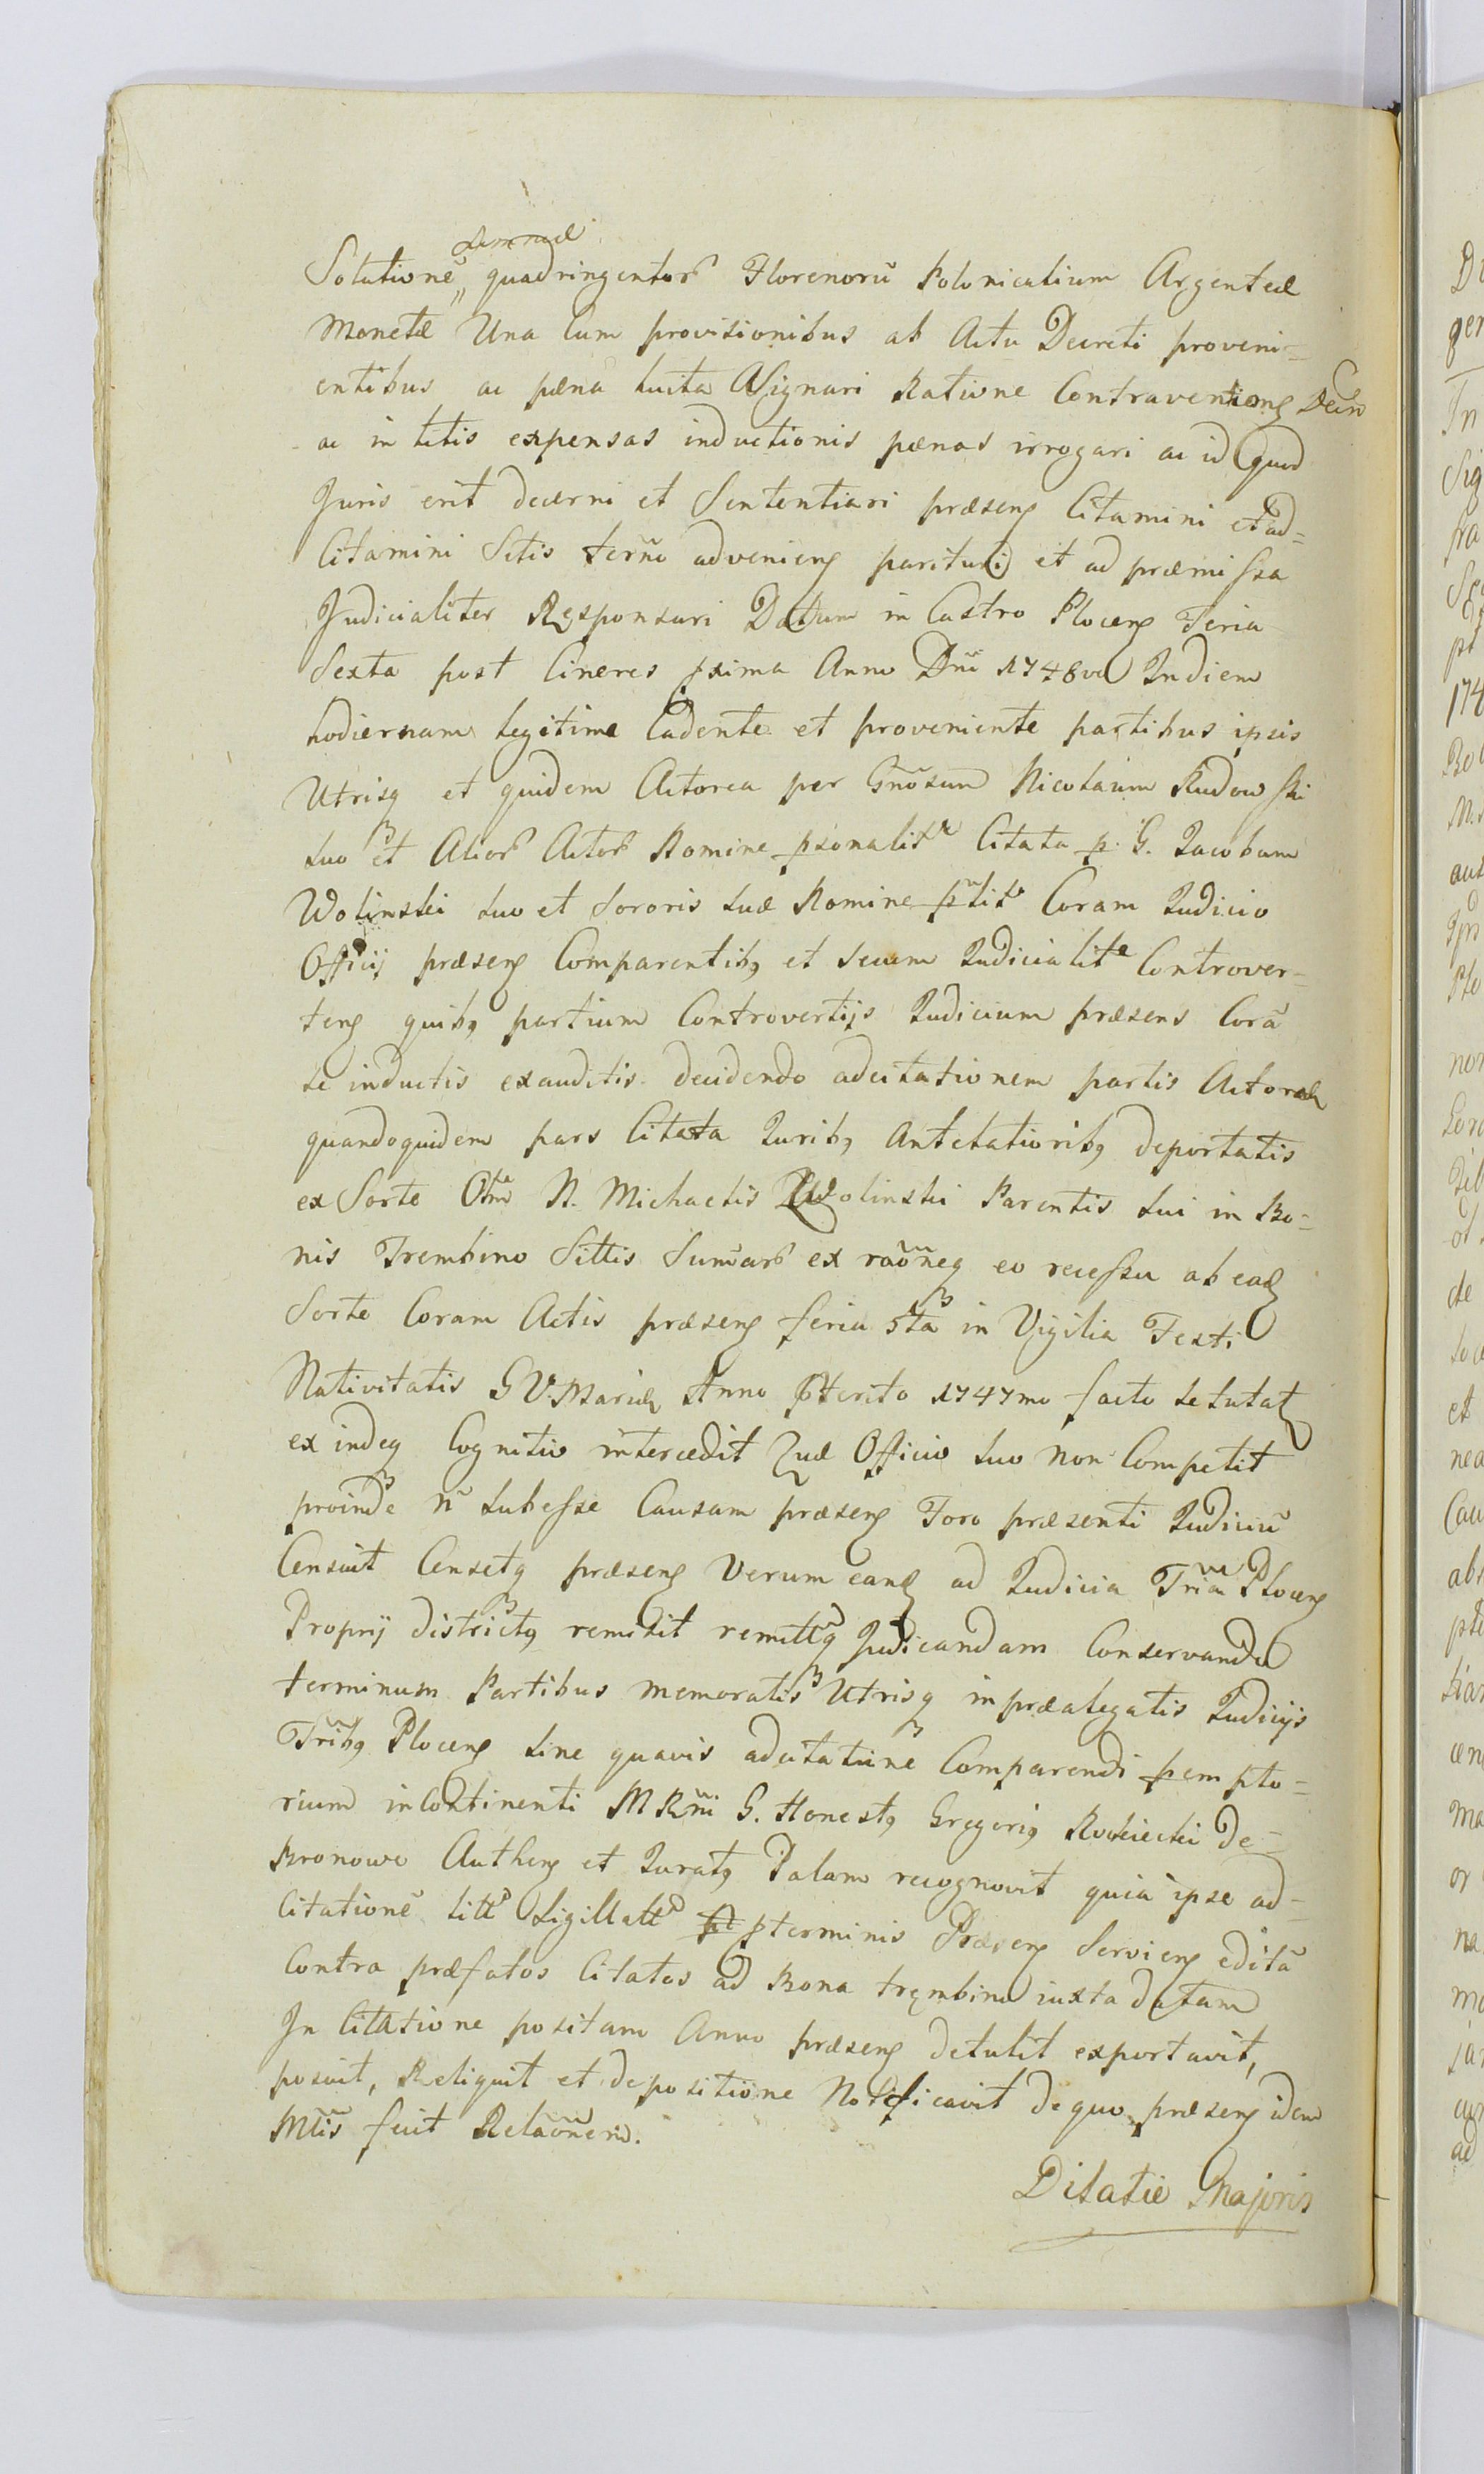 Summæ
Solutionẽ quadringentor Florenorũ Polonicalium Argenteæ
Monetæ Una Cum provisionibus ab Actu Decreti proveni=
entibus ac pæna luita Assignari Ratione Contraventionis Decri
ac in litis expensas inductionis pænas irrogari ac id Quod
Juris erit decerni et Sententiari præsens Citamini et ad=
Citamini Sitis termo adveniens parituri et ad præmissa
Judicialiter Responsuri Datum in Castro Plocens Feria
Sexta post Cineres pxima Anno Dni 1748vo In diem
hodiernam legitime Cadente et proveniente partibus ipsis
Utrisq et quidem Actorea per Gnosum Nicolaum Rudowski
suo et Alior Actor Nomine psonalitr Citata p. G. Jacobum
Wolinski suo et Sororis suæ Nomine pltr Coram Judicio
Officij præsens Comparentibq et secum Judicialitr Controver=
tens quibq partium Controvertijs Judicium præsens Corã
se inductis exauditis decidendo adcitationem partis Actoreæ
quandoquidem pars Citata Juribq Antelatioribq deportatis
ex Sorte Olim N. Michaelis Wolinski Parentis sui in Bo=
nis Trembino Sittis Sumar ex raoneq eo recessu ab ead
Sorte Coram Actis præsens feria 5ta in Vigilia Festi
Nativitatis B V. Mariæ Anno pterito 1747mo facto se tutat
ex indeq Cognitio intercedit Quæ Officio suo non Competit
proinde ñ subesse Causam præsens Foro præsenti Judiciũ
Censuit Censetq præsens Verum eand ad Judicia Tria Plocens
Proprij districtq remisit remittq Judicandam Conservando
terminum Partibus memoratis Utrisq in præalegatis Judicijs
Tribq Plocens sine quavis adcitatione Comparendi pempto=
rium in Continenti M Rni G. Honestq Gregoriq Rockicki de
Bronowo Authens et Juratq Palam recognovit quia ipse ad=
Citationẽ litt Sigillatt pterminis Præsens Serviens editã
Contra præfatos Citatos ad Bona trembino iuxta datam
In Citatione positam Anno præsens detulit exportavit,
posuit, Reliquit et de positione Notificavit de quo præsens idem
Mtis fecit Relaonem.
Dilatie Majoris